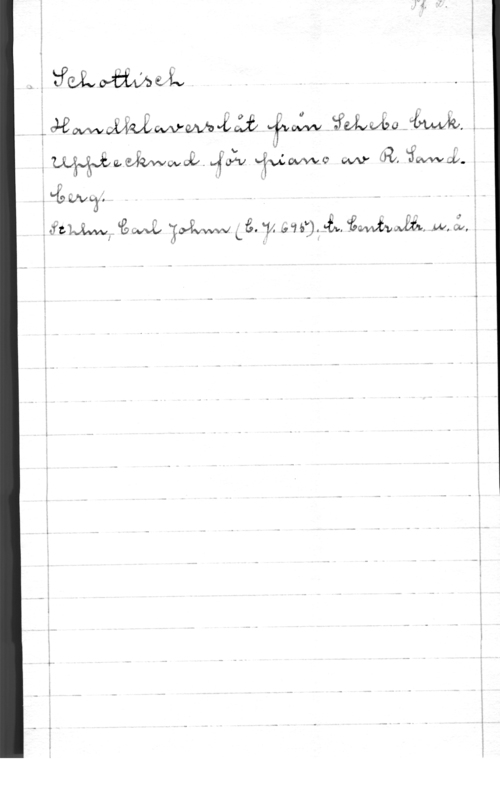 Pf. 2.
Schottisch
Handklaverslåt från Schebo bruk.
Upptecknad för piano av R. Sand-
berg.
Sthlm, Carl Johnn (C. J. 696), tr. Centraltr. u. å.